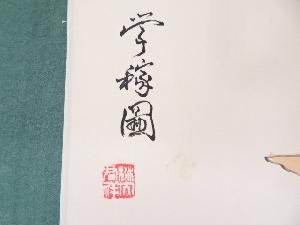 学稼圖